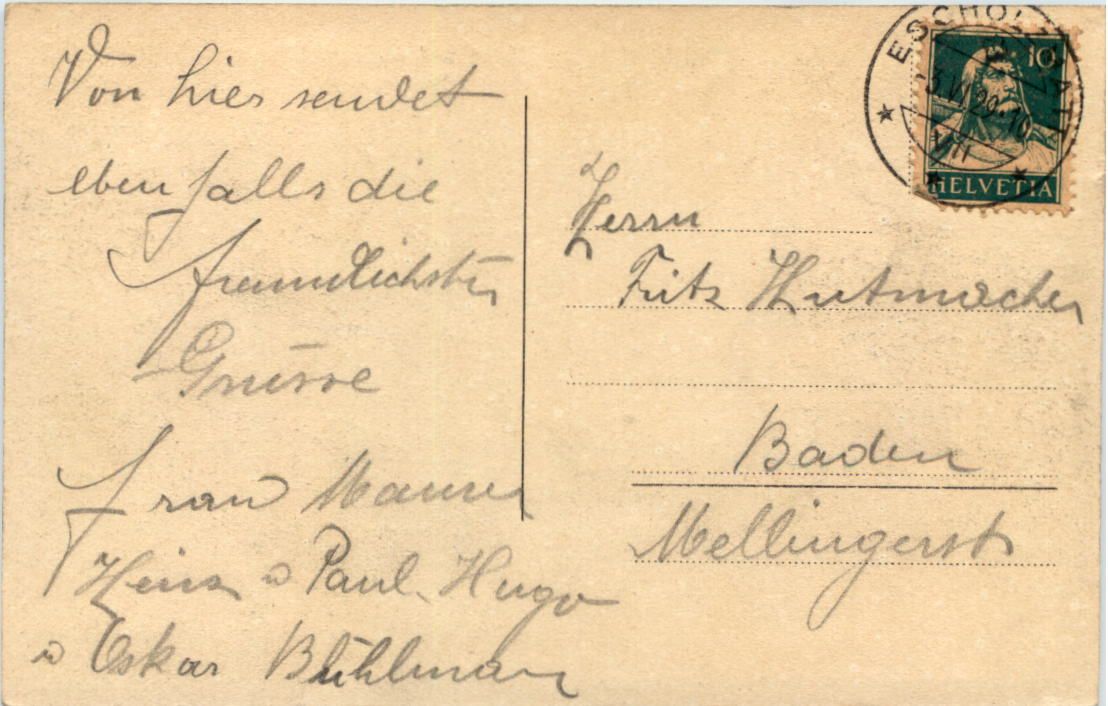 Von hier sendet
ebenfalls die
freundlichsten
Grüsse
Frau Maurer
Heinz u Paul. Hugo
u Oskar Bühlmann
ESCHOLZMATT
3.VI.29.10
VIII
10
HELVETIA
Herrn
Fritz Hutmacher
Baden
Mellingerstr